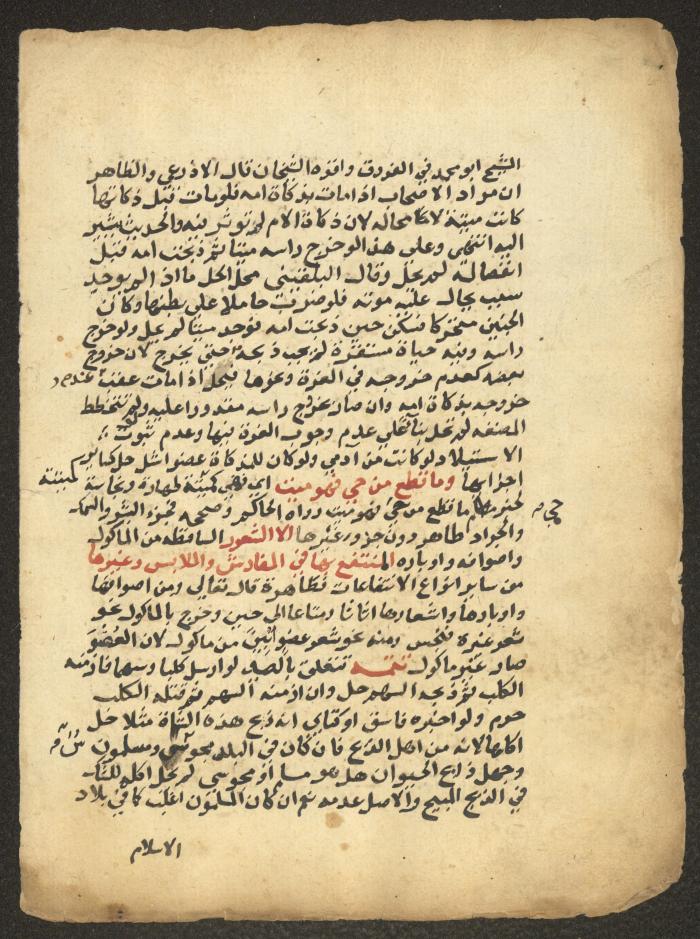 الشيخ ابو محمد في الفروق واقره الشيخان قال الاذرعي والظاهر
ان مراد الاصحاب اذا مات بذكاة امه فلو مات قبل ذكاتها
كانت ميتة لا محالة لان ذكاة الام لم تؤثر فيه والحديث يشير
اليه انتهى وعلى هذا لو خرج راسه ميتا ثم ذبحت امه قبل
انفصاله لم يحل وقال البلقيني محل الحل ما اذا لم يوجد
سبب يحال عليه موته فلو ضرب حاملا على بطنها وكان
الجنين متحركا فسكن حين ذبحت امه فوجد ميتا لم يحل ولو خرج
راسه وفيه حياة مستقرة لم يجب ذبحه حتى يخرج لان خروج
بعضه كعدم خروجه في الغرة ونحوها فيحل اذا مات عقب
خروجه بذكاة امه وان صار بخروج راسه مقدورا عليه ولو لم تتخطط
المضغة لم تحل بناء على عدم وجوب الغرة فيها وعدم ثبوت
الاستيلاد لو كانت من ادمي ولو كان للمذكاة عضو اشل حل كساير
اجزايها وما قطع من حي فهو ميت اي فهي كميتته طهارة ونجاسة
لخبر ما قطع من حي فهو ميت رواه الحاكم وصححه فجزء البشر والسمك
والجراد طاهر دون جزء غيرها الا الشعور الساقطة من الماكول
واصوافه واوباره المنتفع بها في المفارش والملابس وغيرها
من ساير انواع الانتفاعات فطاهرة قال تعالى ومن اصوافها
واوبارها واشعارها اثاثا ومتاعا الى حين وخرج بالماكول نحو
شعر غيره فنجس ومنه نحو شعر عضو ابين من ماكول لان العضو
صار غير ماكول تتمة تتعلق بالصيد لو ارسل كلبا وسهما فازمنه
الكلب ثم ذبحه السهم حل وان ازمنه السهم ثم قتله الكلب
حرم ولو اخبره فاسق او كتابي انه ذبح هذه الشاة مثلا حل
اكلها لانه من اهل الذبح فان كان في البلد مجوسي ومسلمون
وجهل ذابح الحيوان هل هو مسلم او مجوسي لم يحل اكله للشك
في الذبح المبيح والاصل عدمه نعم ان كان المسلمون اغلب كما في بلاد
الاسلام